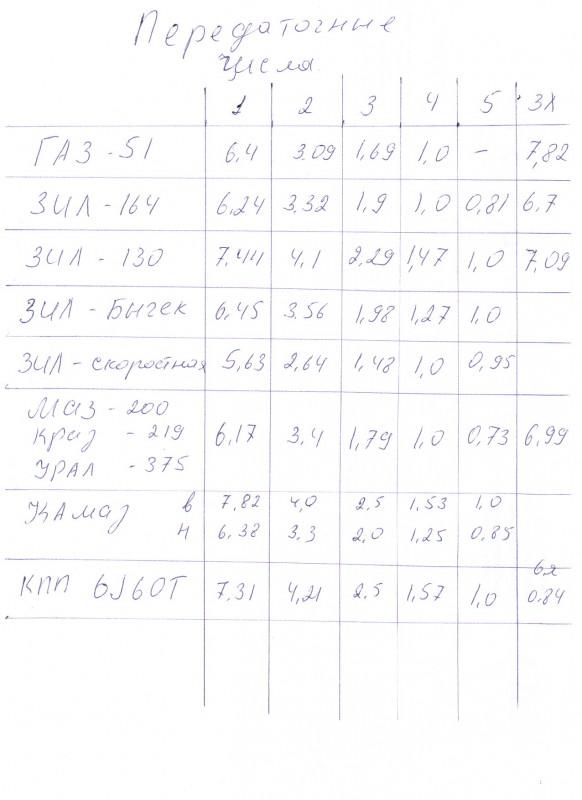 Передаточные
числа
1 2 3 4 5 ЗХ
ГАЗ-51 6,4 3.09 1,69 1,0 - 7,82
ЗИЛ-164 6,24 3,32 1,9 1,0 0,81 6,7
ЗИЛ-130 7,44 4,1 2,29 1,47 1,0 7,09
ЗИЛ-Бычек 6,45 3.56 1,98 1,27 1,0
ЗИЛ-скоростная 5,63 2,64 1,48 1,0 0,95
МАЗ-200
Краз-219 6,17 3,4 1,79 1,0 0,73 6,99
УРАЛ-375
КАмаз в 7,82 4,0 2,5 1,53 1,0
н 6,38 3,3 2,0 1,25 0,85
6я
КПП 6J60T 7,31 4,21 2,5 1,57 1,0 0,84